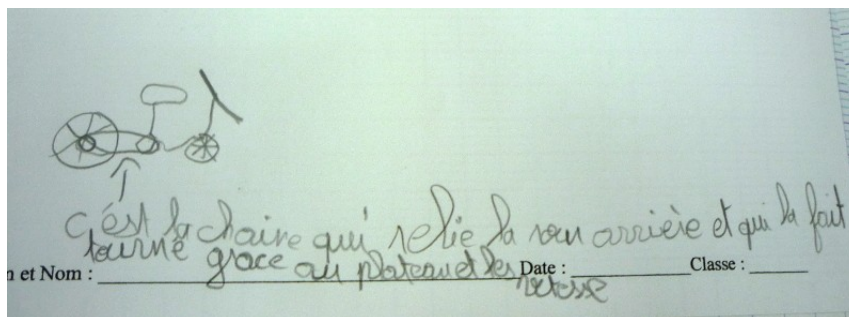 c'est la chaine qui relie la rou arrière et qui la fait
tourné grace au plateau et les
vitesse
n et Nom : Date : Classe :